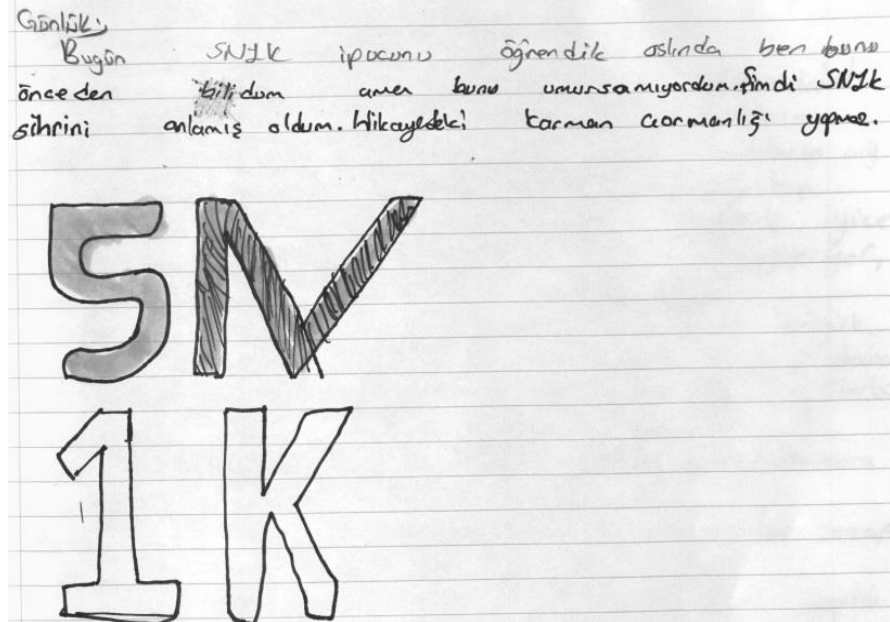 Günlük:
Bugün 5N1K ipucunu öğrendik aslında ben bunu
önceden bilidum ama bunu umursamıyordum. Şimdi 5N1k
sihrini anlamış oldum. Hikayedeki karman çormanlığı yapmaz.
5N
1K